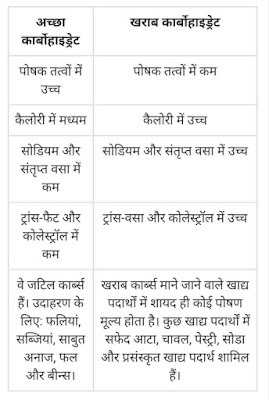 अच्छा
कार्बोहाइड्रेट
खराब कार्बोहाइड्रेट
पोषक तत्वों में
उच्च
पोषक तत्वों में कम
कैलोरी में मध्यम
कैलोरी में उच्च
सोडियम और
संतृप्त वसा में
कम
सोडियम और संतृप्त वसा में उच्च
ट्रांस-फैट और
कोलेस्ट्रॉल में
कम
ट्रांस-वसा और कोलेस्ट्रॉल में उच्च
वे जटिल कार्ब्स
हैं। उदाहरण के
लिए: फलियां,
सब्जियां, साबुत
अनाज, फल
और बीन्स।
खराब कार्ब्स माने जाने वाले खाद्य
पदार्थों में शायद ही कोई पोषण
मूल्य होता है। कुछ खाद्य पदार्थों में
सफेद आटा, चावल, पेस्ट्री, सोडा
और प्रसंस्कृत खाद्य पदार्थ शामिल
हैं।